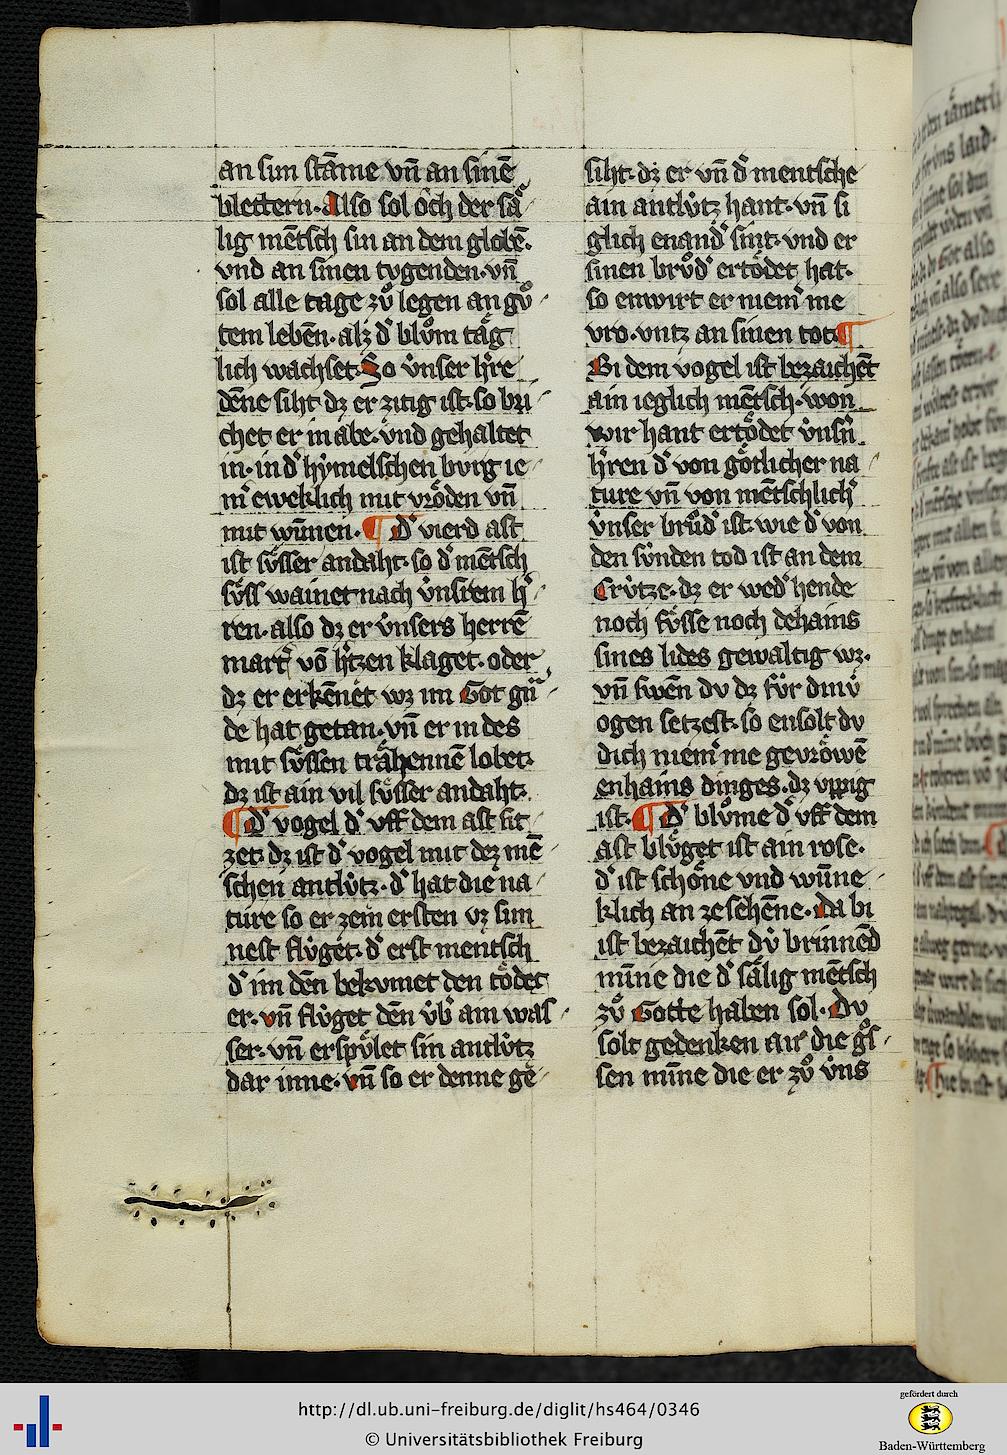 an sim stāme vn̄ an sinē
blettern. Also sol och der sä
lig mētsch sin an dem globē.
vnd an sinen tvgenden. vn̄
sol alle tage zů legen an gů
tem leben. alz d͛ blům täg
lich wachset. So vnser hr̄e
dēne siht dz er zitig ist. so bri
chet er in abe. vnd gehaltet
in. in d͛ hẏmelschen bvrg ie
m͛ eweklich mit vröden vn̄
mit wūnen. ¶ D͛ vierd ast
ist sůsser andaht. so d͛ mētsch
sůss wainet nach vnsrem h͛
ren. also dz er vnsers herrē
mart͛ vō h͛tzen klaget. oder
dz er erkēnet wz im Got gů
de hat getan. vn̄ er in des
mit sůssen trähennē lobet.
dz ist ain vil sůsser andaht.
¶ D͛ vogel d͛ vff dem ast sit
zet. dz ist d͛ vogel mit dez mē
schen antlútz. d͛ hat die na
ture so er zem ersten vz sim
nest flúget. d͛ erst mentsch
d͛ im dēn bekvmet den tödet
er. vn̄ flúget dēn úb͛ ain was
ser. vn̄ erspůlet sin antlútz
dar inne. vn̄ so er denne ge
siht. dz er vn̄ d͛ mentsche
ain antlútz hant. vn̄ si
glich enand͛ sint. vnd er
sinen brůd͛ ertödet hat.
so enwirt er niem͛ me
vro. vntz an sinen tot. ¶
Bi dem vogel ist bezaichēt
ain ieglich mētsch. won
wir hant ertödet únsn̄
h͛ren d͛ von götlicher na
ture vn̄ von mētschlich͛
únser brůd͛ ist. wie d͛ von
den súnden tod ist an dem
Crútze. dz er wed͛ hende
noch fůsse noch dehains
sines lides gewaltig wz.
vn̄ swēn dv dz fúr dinú
ogen setzest. so ensolt dv
dich niem͛ me gevröwē
enhains dinges. dz vppig
ist. ¶ D͛ blůme d͛ vff dem
ast blůget ist ain rose.
d͛ ist schöne vnd wūne
klich an zesehēne. Da bi
ist bezaichēt dú brinnēd
mīne die d͛ sälig mētsch
zů Gotte haben sol. Dv
solt gedenken an die gs
sen mīne die er zů úns
http://dl.ub.uni-freiburg.de/diglit/hs464/0346
© Universitätsbibliothek Freiburg
gefördert durch
Baden-Württemberg